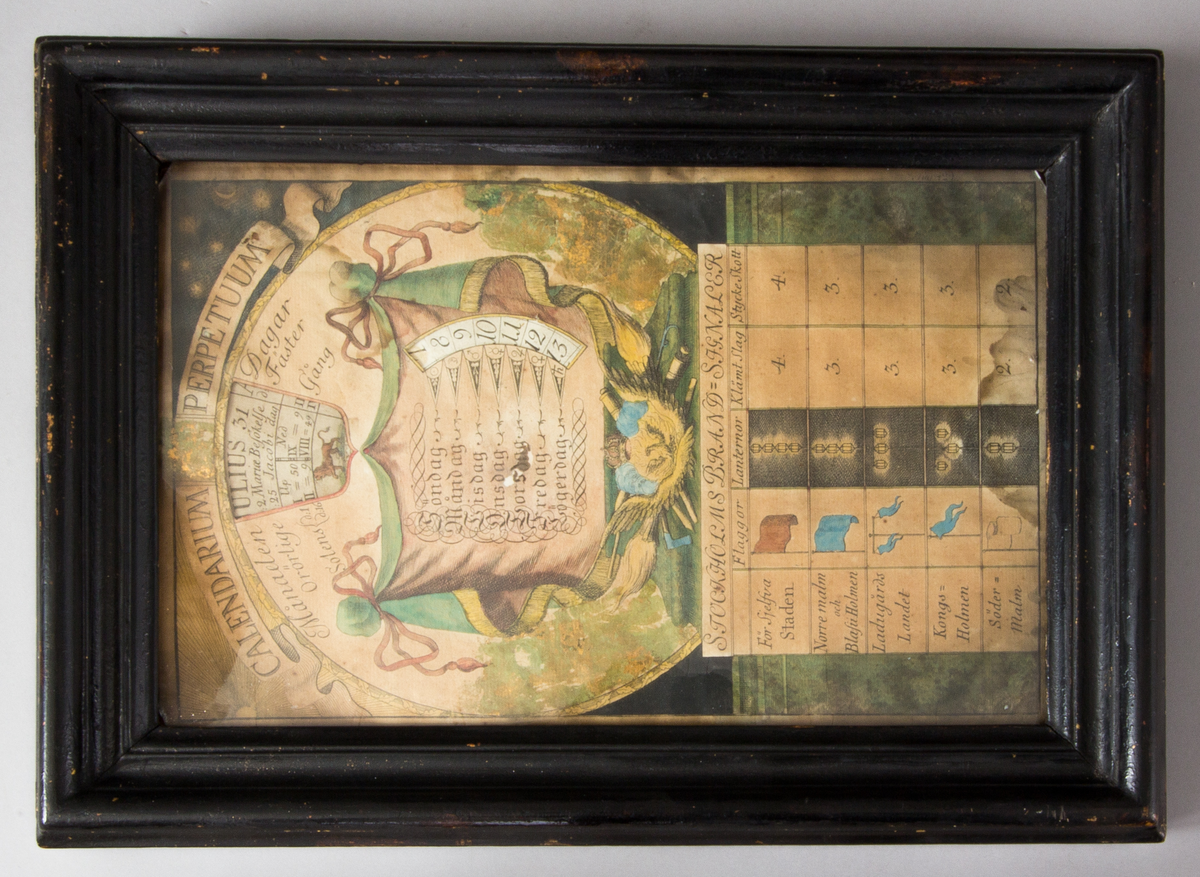 CALENDARIUM PERPETUUM
Månaden
JULIUS 31
Dagar
Orörlige
2 Mariæ Besökelse d
Fäster
25 Jacobi dag
Up Ned
Solens
Gång
Söndag
Måndag
Tisdag
Onsdag
Torsdag
Fredag
Lögerdag
7 8 9 10 11 12 13
STOCKHOLMS BRAND=SIGNALER
Flaggor Lanternor Klämt Slag Stycke Skott
För Sjelfva Staden. 4. 4.
Norre malm och Blasii Holmen 3. 3.
Ladugårds Landet 3. 3.
Kongs=Holmen 3. 3.
Söder=Malm. 2. 2.